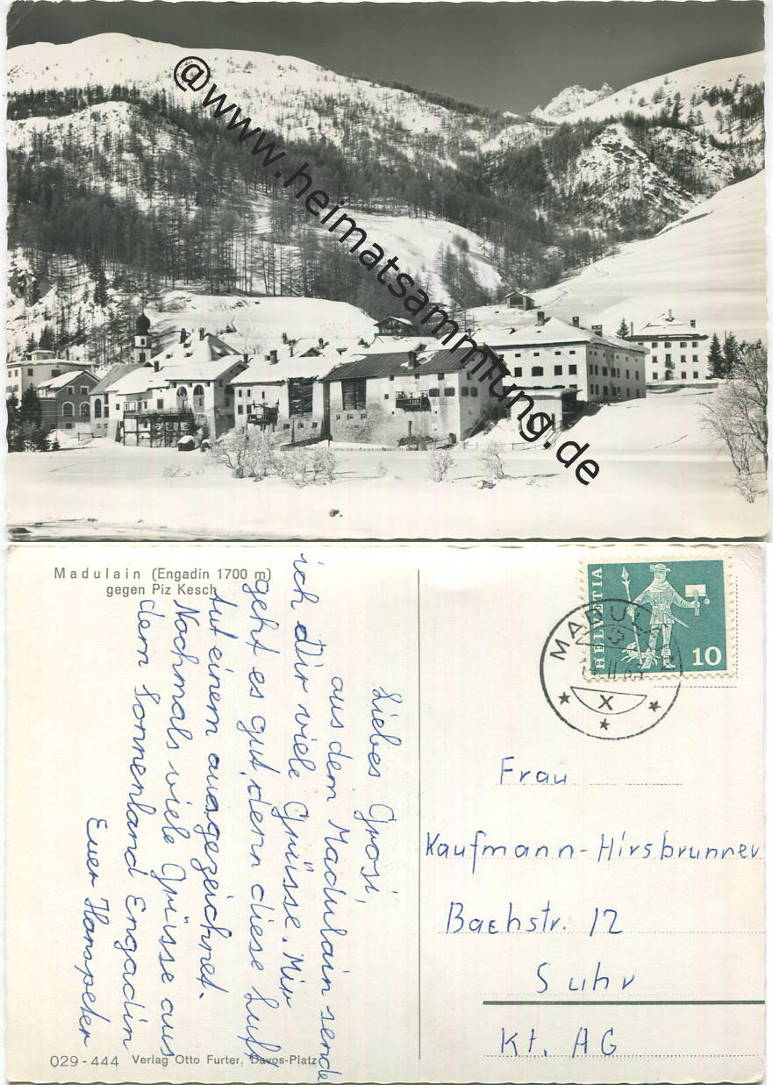 @www.heimatsammlung.de
Madulain (Engadin 1700 m)
gegen Piz Kesch
Liebes Grosi,
aus dem Madulain sende
ich dir viele Grüsse. Mir
geht es gut, denn diese Luft
tut einem ausgezeichnet.
Nochmals viele Grüsse aus
dem Sonnenland Engadin
Euer Hanspeter
029-444 Verlag Otto Furter, Davos-Platz
HELVETIA
10
X
Frau
Kaufmann-Hirsbrunner
Bachstr. 12
Suhr
Kt. AG